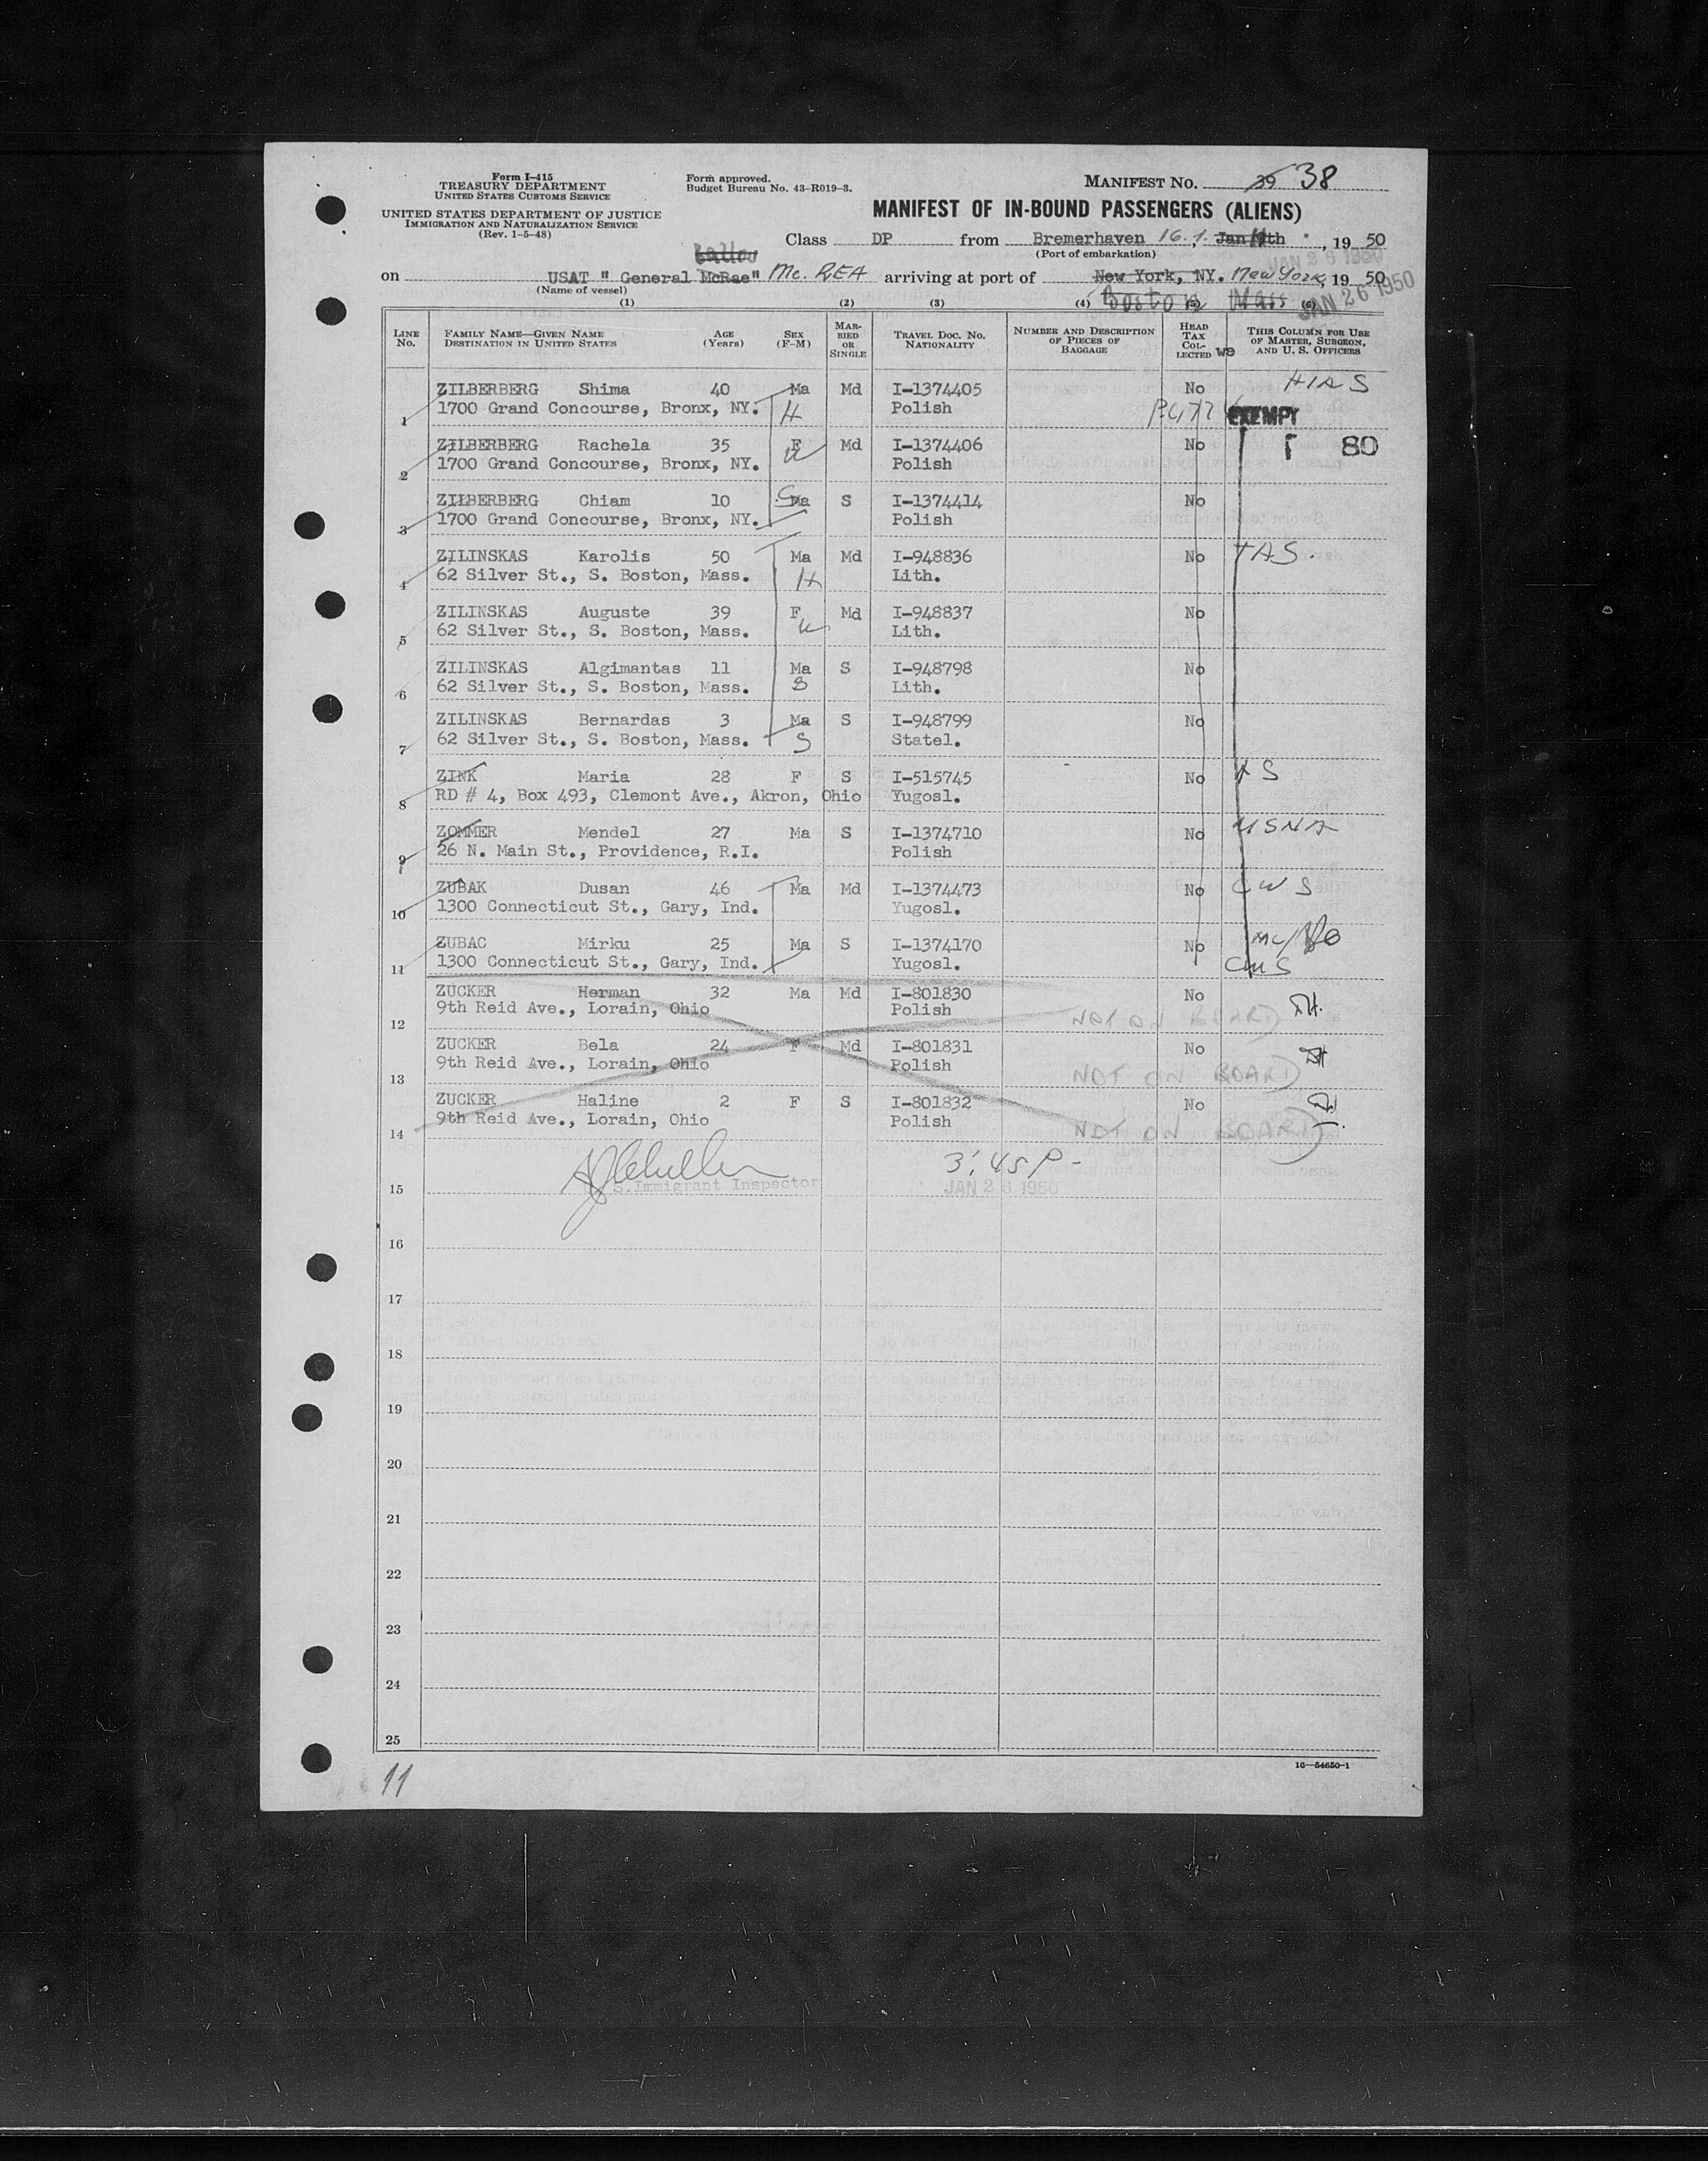 Form I-415
TREASURY DEPARTMENT
UNITED STATES CUSTOMS SERVICE
UNITED STATES DEPARTMENT OF JUSTICE
IMMIGRATION AND NATURALIZATION SERVICE
(Rev. 1-5-48)
Form approved.
Budget Bureau No. 43-R019-3.
MANIFEST NO. 39 38
MANIFEST OF IN-BOUND PASSENGERS (ALIENS)
Ballou
Class DP from Bremerhaven 16.1., Jan th, 1950
(Port of embarkation)
JAN 26 1950
on USAT " General McRae" Mc. REA arriving at port of New York, NY. New York, 1950
(Name of vessel)
Boston Mass
JAN 26 1950
(1) (2) (3) (4) (5) (6)
LINE NO.
FAMILY NAME—GIVEN NAME
DESTINATION IN UNITED STATES
AGE (Years)
SEX (F-M)
MARRIED OR SINGLE
TRAVEL DOC. NO.
NATIONALITY
NUMBER AND DESCRIPTION OF PIECES OF BAGGAGE
HEAD TAX COLLECTED
THIS COLUMN FOR USE OF MASTER, SURGEON, AND U. S. OFFICERS
ZILBERBERG Shima 40 Ma Md I-1374405 No HIAS
1 1700 Grand Concourse, Bronx, NY. H Polish EXEMPT
ZILBERBERG Rachela 35 F Md I-1374406 No 80
2 1700 Grand Concourse, Bronx, NY. W Polish
ZILBERBERG Chiam 10 Ma S I-1374414 No
3 1700 Grand Concourse, Bronx, NY. Polish
ZILINSKAS Karolis 50 Ma Md I-948836 No
4 62 Silver St., S. Boston, Mass. H Lith.
ZILINSKAS Auguste 39 F Md I-948837 No
5 62 Silver St., S. Boston, Mass. W Lith.
ZILINSKAS Algimantas 11 Ma S I-948798 No
6 62 Silver St., S. Boston, Mass. S Lith.
ZILINSKAS Bernardas 3 Ma S I-948799 No
7 62 Silver St., S. Boston, Mass. S Statel.
ZINK Maria 28 F S I-515745 No
8 RD # 4, Box 493, Clemont Ave., Akron, Ohio Yugosl.
ZOMMER Mendel 27 Ma S I-1374710 No USNA
9 26 N. Main St., Providence, R.I. Polish
ZUBAK Dusan 46 Ma Md I-1374473 No CWS
10 1300 Connecticut St., Gary, Ind. Yugosl.
ZUBAC Mirku 25 Ma S I-1374170 No
11 1300 Connecticut St., Gary, Ind. Yugosl. CWS
ZUCKER Herman 32 Ma Md I-801830 No
12 9th Reid Ave., Lorain, Ohio Polish NOT ON BOARD
ZUCKER Bela 24 F Md I-801831 No
13 9th Reid Ave., Lorain, Ohio Polish NOT ON BOARD
ZUCKER Haline 2 F S I-801832 No
14 9th Reid Ave., Lorain, Ohio Polish NOT ON BOARD
3:45 P-
15 S.Immigrant Inspector JAN 26 1950
16
17
18
19
20
21
22
23
24
25
16—54650-1
11